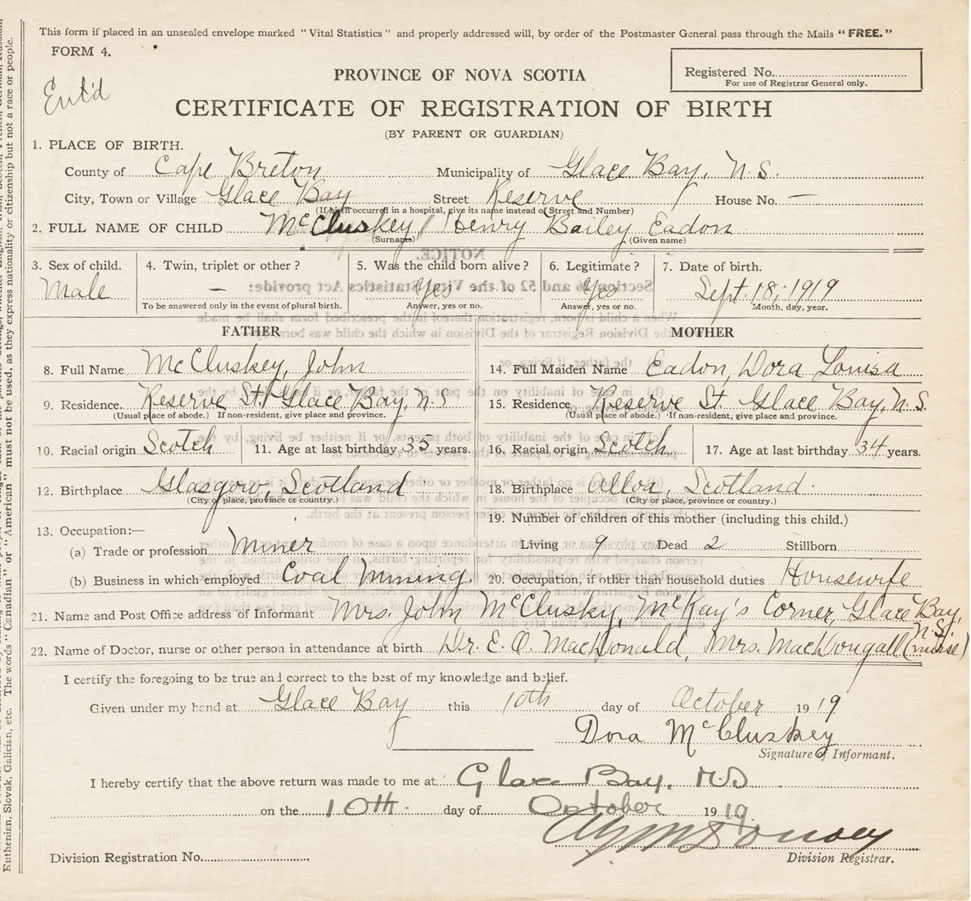 This form if placed in an unsealed envelope marked "Vital Statistics" and properly addressed will, by order of the Postmaster General pass through the Mails "FREE."
FORM 4.
Ent'd
PROVINCE OF NOVA SCOTIA
Registered No.
For use of Registrar General only.
CERTIFICATE OF REGISTRATION OF BIRTH
(BY PARENT OR GUARDIAN)
1. PLACE OF BIRTH.
County of Cape Breton Municipality of Glace Bay, N.S.
City, Town or Village Glace Bay Street Reserve House No. —
(If birth occurred in a hospital, give its name instead of Street and Number)
2. FULL NAME OF CHILD McCluskey / Henry Bailey Eadon
(Surname) (Given name)
3. Sex of child. 4. Twin, triplet or other? 5. Was the child born alive? 6. Legitimate? 7. Date of birth.
Male — Yes Yes Sept. 18, 1919
To be answered only in the event of plural birth. Answer, yes or no. Answer, yes or no. Month, day, year.
FATHER MOTHER
8. Full Name McCluskey, John 14. Full Maiden Name Eadon, Dora Louisa
9. Residence. Reserve St. Glace Bay, N.S 15. Residence Reserve St. Glace Bay, N.S.
(Usual place of abode.) If non-resident, give place and province. (Usual place of abode.) If non-resident, give place and province.
10. Racial origin Scotch 11. Age at last birthday 35 years. 16. Racial origin Scotch 17. Age at last birthday 34 years.
12. Birthplace Glasgow, Scotland 18. Birthplace Alloa, Scotland.
(City or place, province or country.) (City or place, province or country.)
13. Occupation:— 19. Number of children of this mother (including this child.)
(a) Trade or profession Miner Living 9 Dead 2 Stillborn
(b) Business in which employed Coal Mining. 20. Occupation, if other than household duties Housewife
21. Name and Post Office address of Informant Mrs. John McClusky, McKay's Corner, Glace Bay, N.S.
22. Name of Doctor, nurse or other person in attendance at birth Dr. E. O. MacDonald, Mrs. MacDougall (nurse)
I certify the foregoing to be true and correct to the best of my knowledge and belief.
Given under my hand at Glace Bay this 10th day of October 1919
Dora McCluskey
Signature of Informant.
I hereby certify that the above return was made to me at Glace Bay. N.S
on the 10th. day of October 1919.
Division Registration No. Division Registrar.
Ruthenian, Slovak, Galician, etc. The words "Canadian" or "American" must not be used, as they express nationality or citizenship but not a race or people.